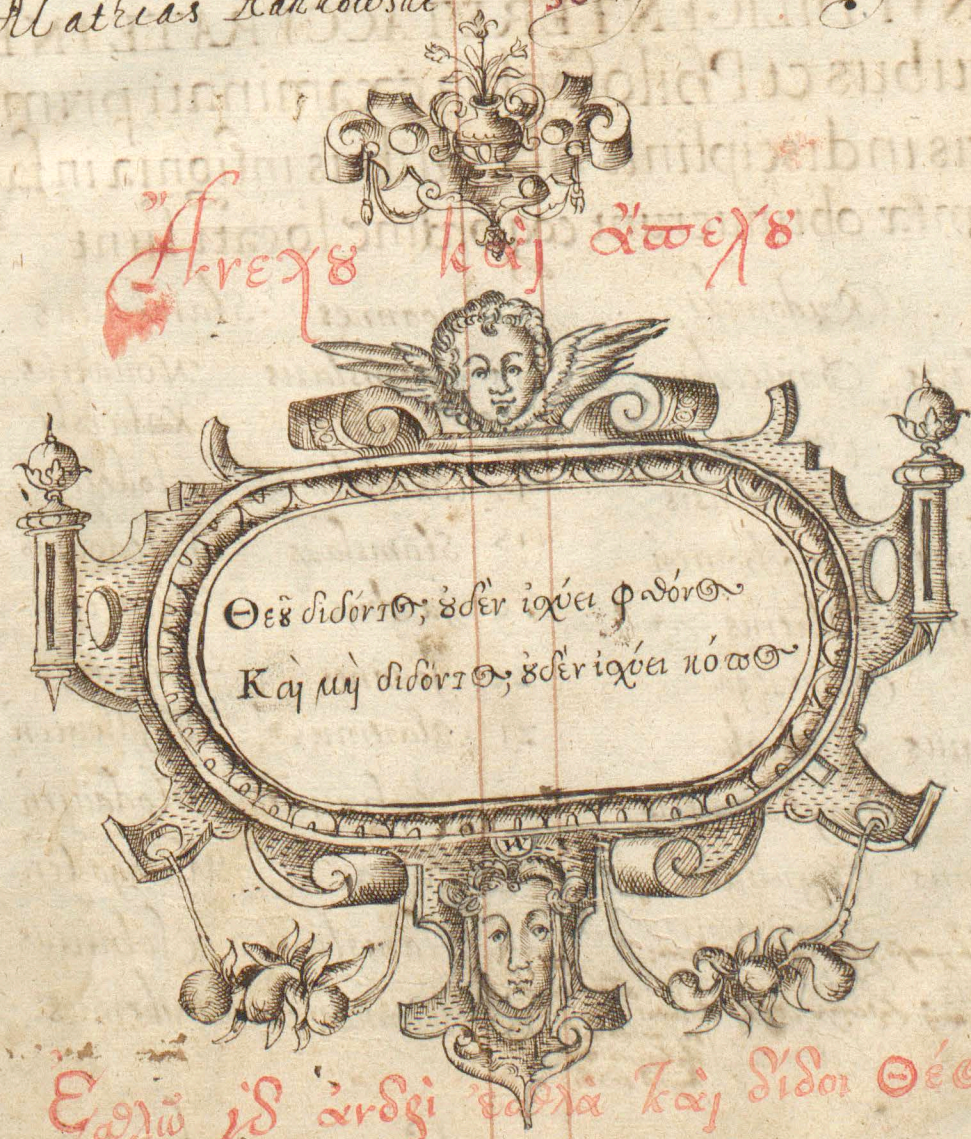 Mathias
Ἄνεχου καὶ ἄπεχου
Θεοῦ διδόντος, οὐδὲν ἰσχύει φθόνος
Καὶ μὴ διδόντος, οὐδὲν ἰσχύει κόπος
Ἐσθλῷ γὰρ ἀνδρὶ ἐσθλὰ καὶ δίδοι Θεός